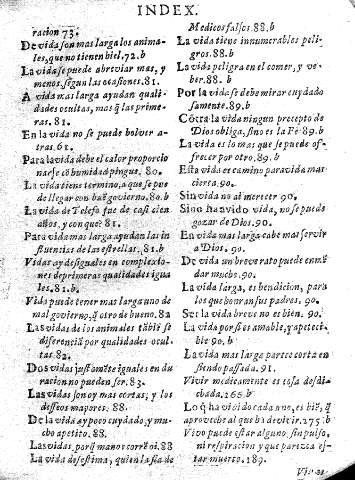 INDEX.
racion 73.
De vida son mas larga los anima-
les, que no tienen biel. 72. b
La vida se puede abreviar mas, y
menos, segun las ocasiones. 81.
A vida mas larga ayudan quali-
dades ocultas, mas q̃ las prime-
ras. 81.
En la vida no se puede bolver a-
tras. 61.
Para la vida debe el calor proporcio
narse cõ humidad pingue. 80.
La vida tiene termino, a que se pue
de llegar con buẽ govierno. 80. b
La vida de Telefo fue de casi cien
años, y con que? 81.
Para vida mas larga ayudan las in
fluencias de las estrellas. 81. b
Vidas ay desiguales en complexio-
nes de primeras qualidades igua
les. 81. b.
Vida puede tener mas larga uno de
mal governio, q̃ otro de bueno. 82
Las vidas de los animales tãbiẽ se
diferenciã por qualidades ocul-
tas 82.
Dos vidas justamẽte iguales en du
racion no pueden ser. 83.
Las vidas son oy mas cortas; y los
desseos mayores. 88.
De la vida ay poco cuydado, y mu-
cho apetito. 88.
Las vidas, porq̃ mas
La vida desestima, quien la fia de
Medicos falsos. 88. b
La vida tiene innumerables peli-
gros. 88. b
La vida peligra en el comer, y be-
ber. 88. b
Por la vida se debe mirar cuydado
samente. 89. b.
Cõtra la vida ningun precepto de
Dios obliga, sino es la Fè. 89. b
La vida es lo mas que se puede of-
frecer por otro. 89. b.
Esta vida es camino para vida mas
cierta. 90.
Sin vida no ai merecer 90.
Sino ha avido vida, no se puede
gozar de Dios. 90.
En vida mas larga cabe mas servir
a Dios. 90.
De vida un breve rato puede enmẽ
dar mucho. 90.
La vida larga, es bendicion, para
los que honran sus padres. 90.
Ser la vida breve no es bien. 90.
La vida por si es amable, y apeteci-
ble 90. b
La vida mas larga parece corta en
siendo passada. 91.
Vivir medicamente es cosa desdi-
chada. 165. b
Lo q̃ ha vivido cada uno, es biẽ, q̃
aproveche al que ha de vivir. 275. b
Vivo puede estar alguno sin pulso,
ni respiracion y que parezca es-
tar muerto. 189.